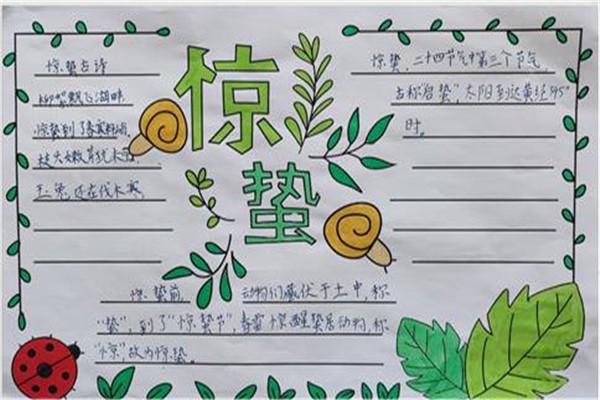 惊
蛰
惊蛰古诗
柳絮飘飞湖畔
惊蛰到了春寒料
惊蛰,二十四节气中第三个节气
古称"启蛰",太阳到达黄经345°
时。
惊蛰前, 动物们藏伏于土中,称
"蛰",到了"惊蛰节",春雷惊醒蛰居动物,称
"惊",故为惊蛰.